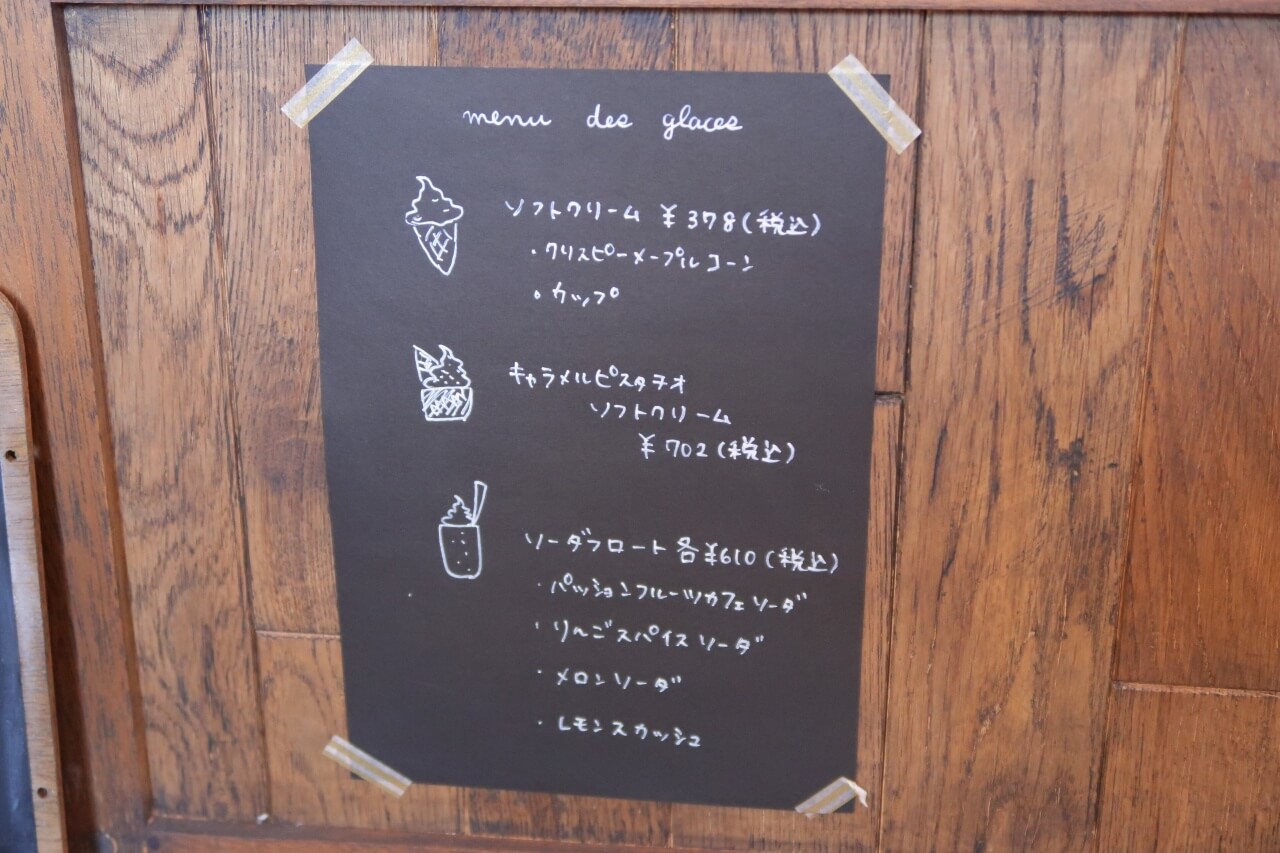 menu des glaces
ソフトクリーム ¥378(税込)
・クリスピーメープルコーン
・カップ
キャラメルピスタチオ
ソフトクリーム
¥702(税込)
ソーダフロート 各¥610(税込)
・パッションフルーツカフェソーダ
・りんごスパイスソーダ
・メロンソーダ
・レモンスカッシュ